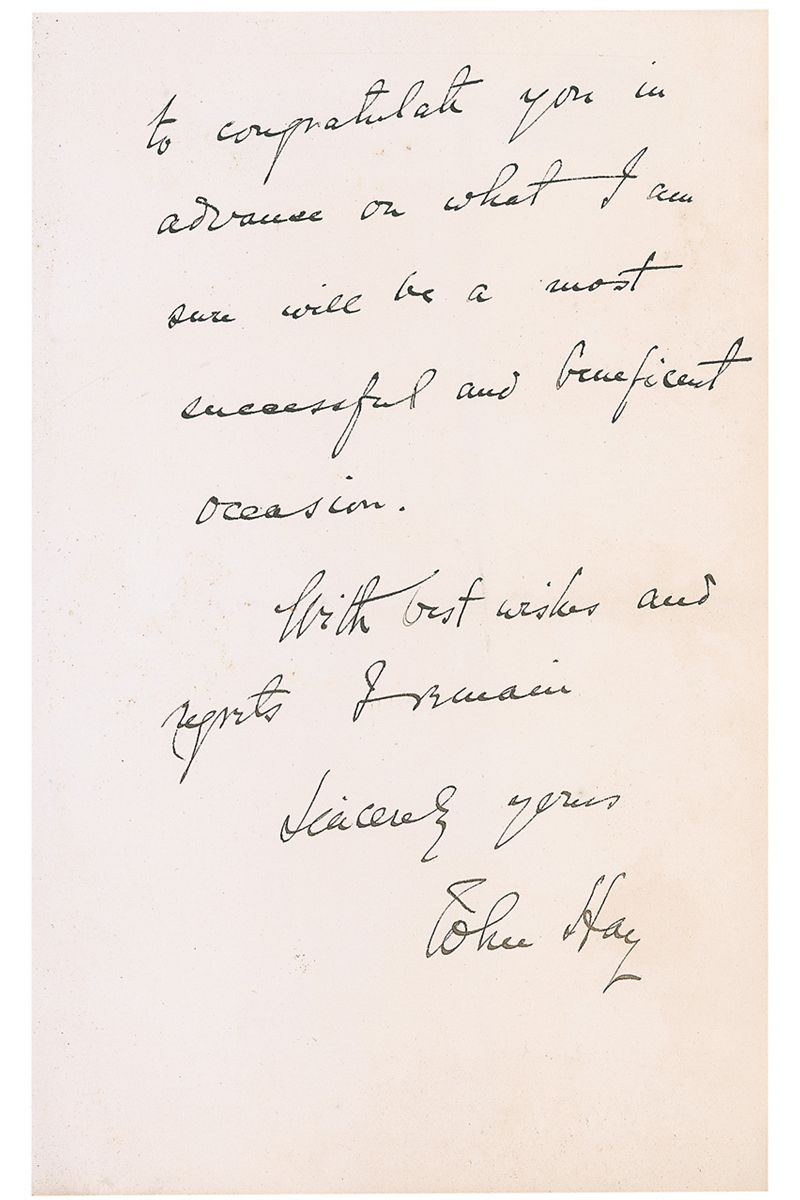 to congratulate you in
advance on what I am
sure will be a most
successful and beneficent
occasion.
With best wishes and
regrets I remain
Sincerely yours
John Hay